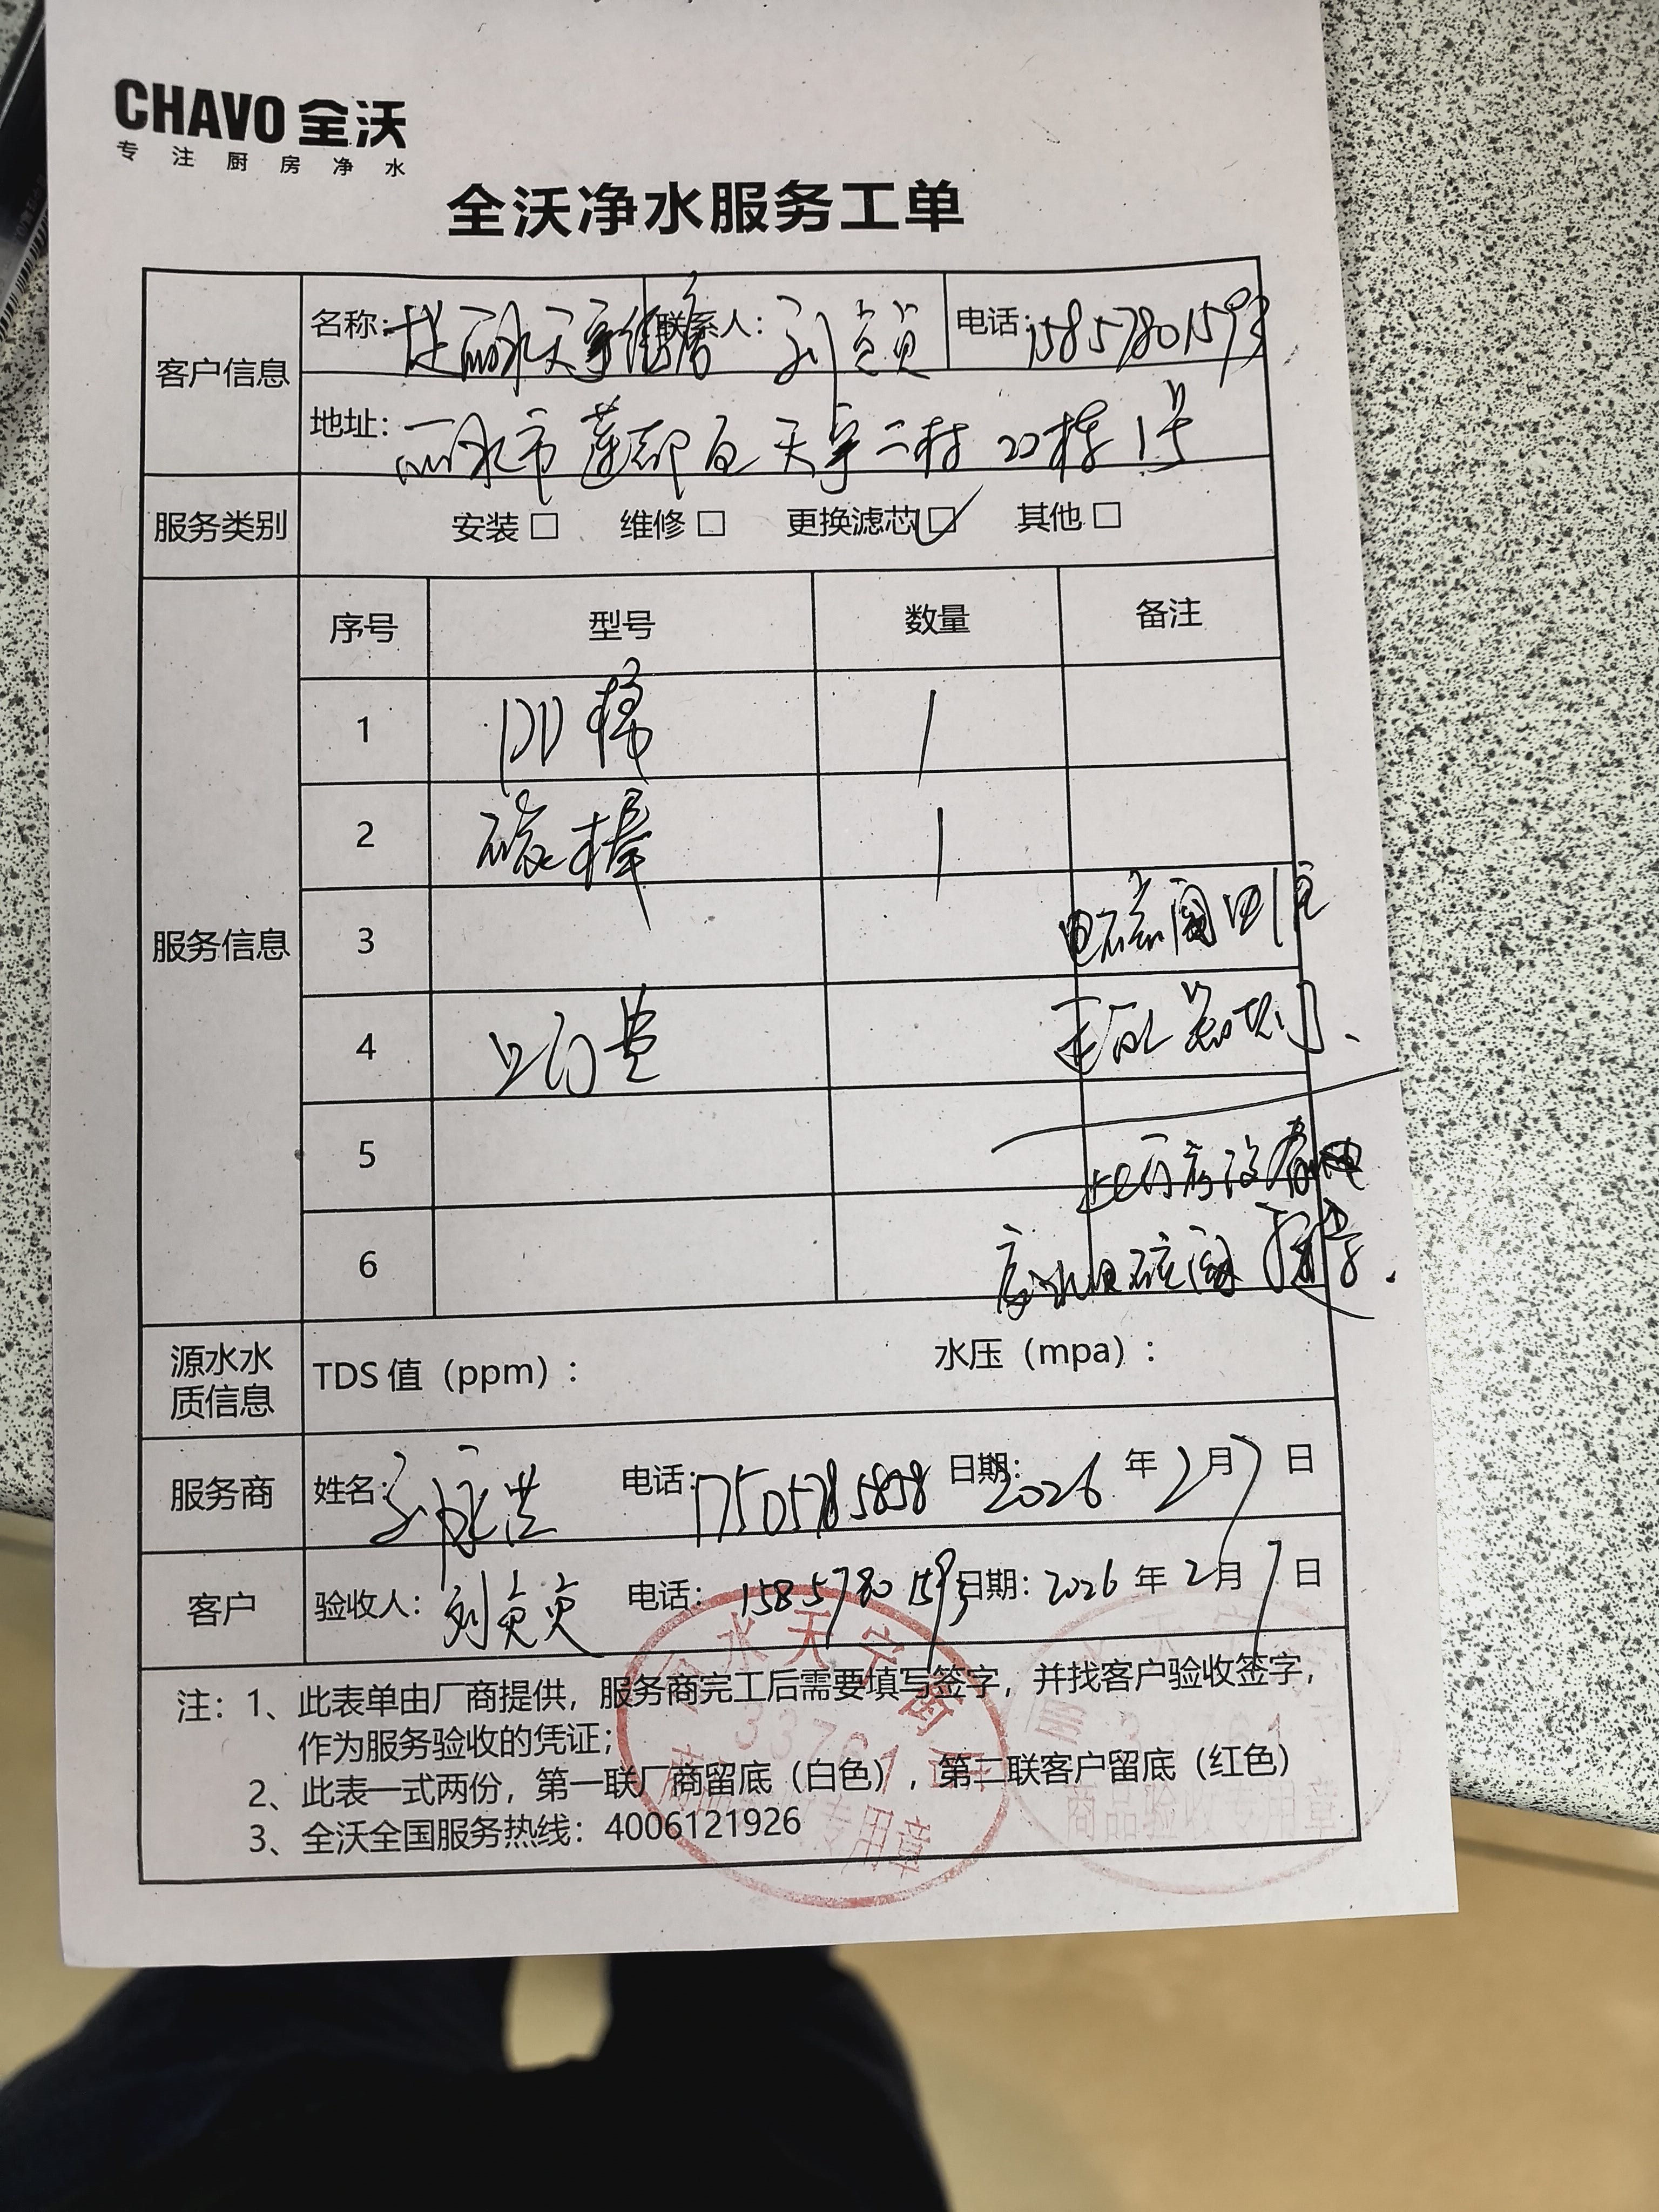 CHAVO 全沃
专注厨房净水
全沃净水服务工单
客户信息
名称: 丽水天宁 联系人: 刘贞贞 电话: 15857801593
地址: 丽水市莲都区天宁二村22栋1号
服务类别 安装□ 维修□ 更换滤芯☑ 其他□
服务信息
序号 型号 数量 备注
1 PP棉 1
2 碳棒 1
3 电磁阀
4 上门费
5
6
源水水质信息 TDS 值（ppm）: 水压（mpa）:
服务商 姓名: 电话: 17505785858 日期: 2026 年 2 月 7 日
客户 验收人: 刘贞贞 电话: 15857801593 日期: 2026 年 2 月 7 日
注: 1、此表单由厂商提供，服务商完工后需要填写签字，并找客户验收签字，
作为服务验收的凭证；
2、此表一式两份，第一联厂商留底（白色），第二联客户留底（红色）
3、全沃全国服务热线: 4006121926
水天宁
33761
专用章
33761
商品验收专用章